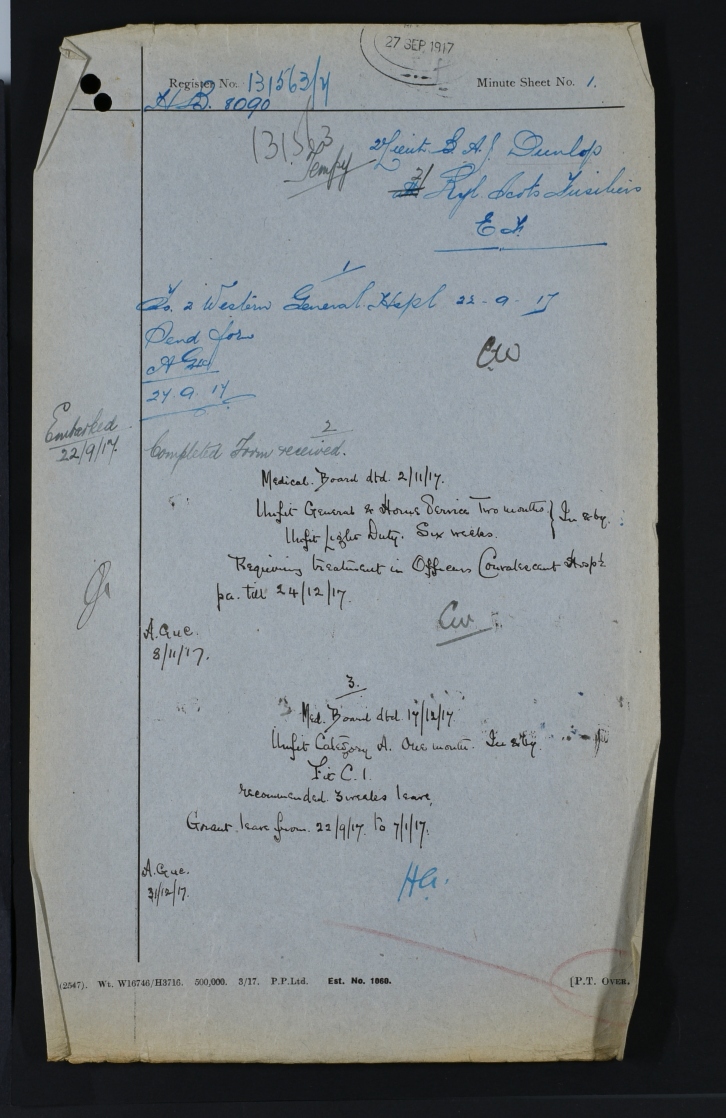 27 SEP 1917
Register No. 131563/4
Minute Sheet No. 1.
H.B. 8090
131563
Tempy
2/Lieut. B. A. J. Dunlop
2/
Ryl. Scots Fusiliers
E.F.
1
To. 2 Western General Hospl 22-9-17
Send form
27.9.17
CW
Embarked
22/9/17.
2
Completed Form received.
Medical Board dtd. 2/11/17.
Unfit General & Home Service Two months } In & by.
Unfit Light Duty. Six weeks.
Requiring treatment in Officers Convalescent Hospl
pa. till 24/12/17.
Cw
8/11/17.
3.
Med. Board dtd. 17/12/17.
Unfit Category A. One month. In & by.
Fit C.1.
recommended 3 weeks leave.
Grant leave from 22/9/17. to 7/1/17.
31/12/17.
(2547). Wt. W16746/H3716. 500,000. 3/17. P.P.Ltd. Est. No. 1860.
[P.T. OVER.